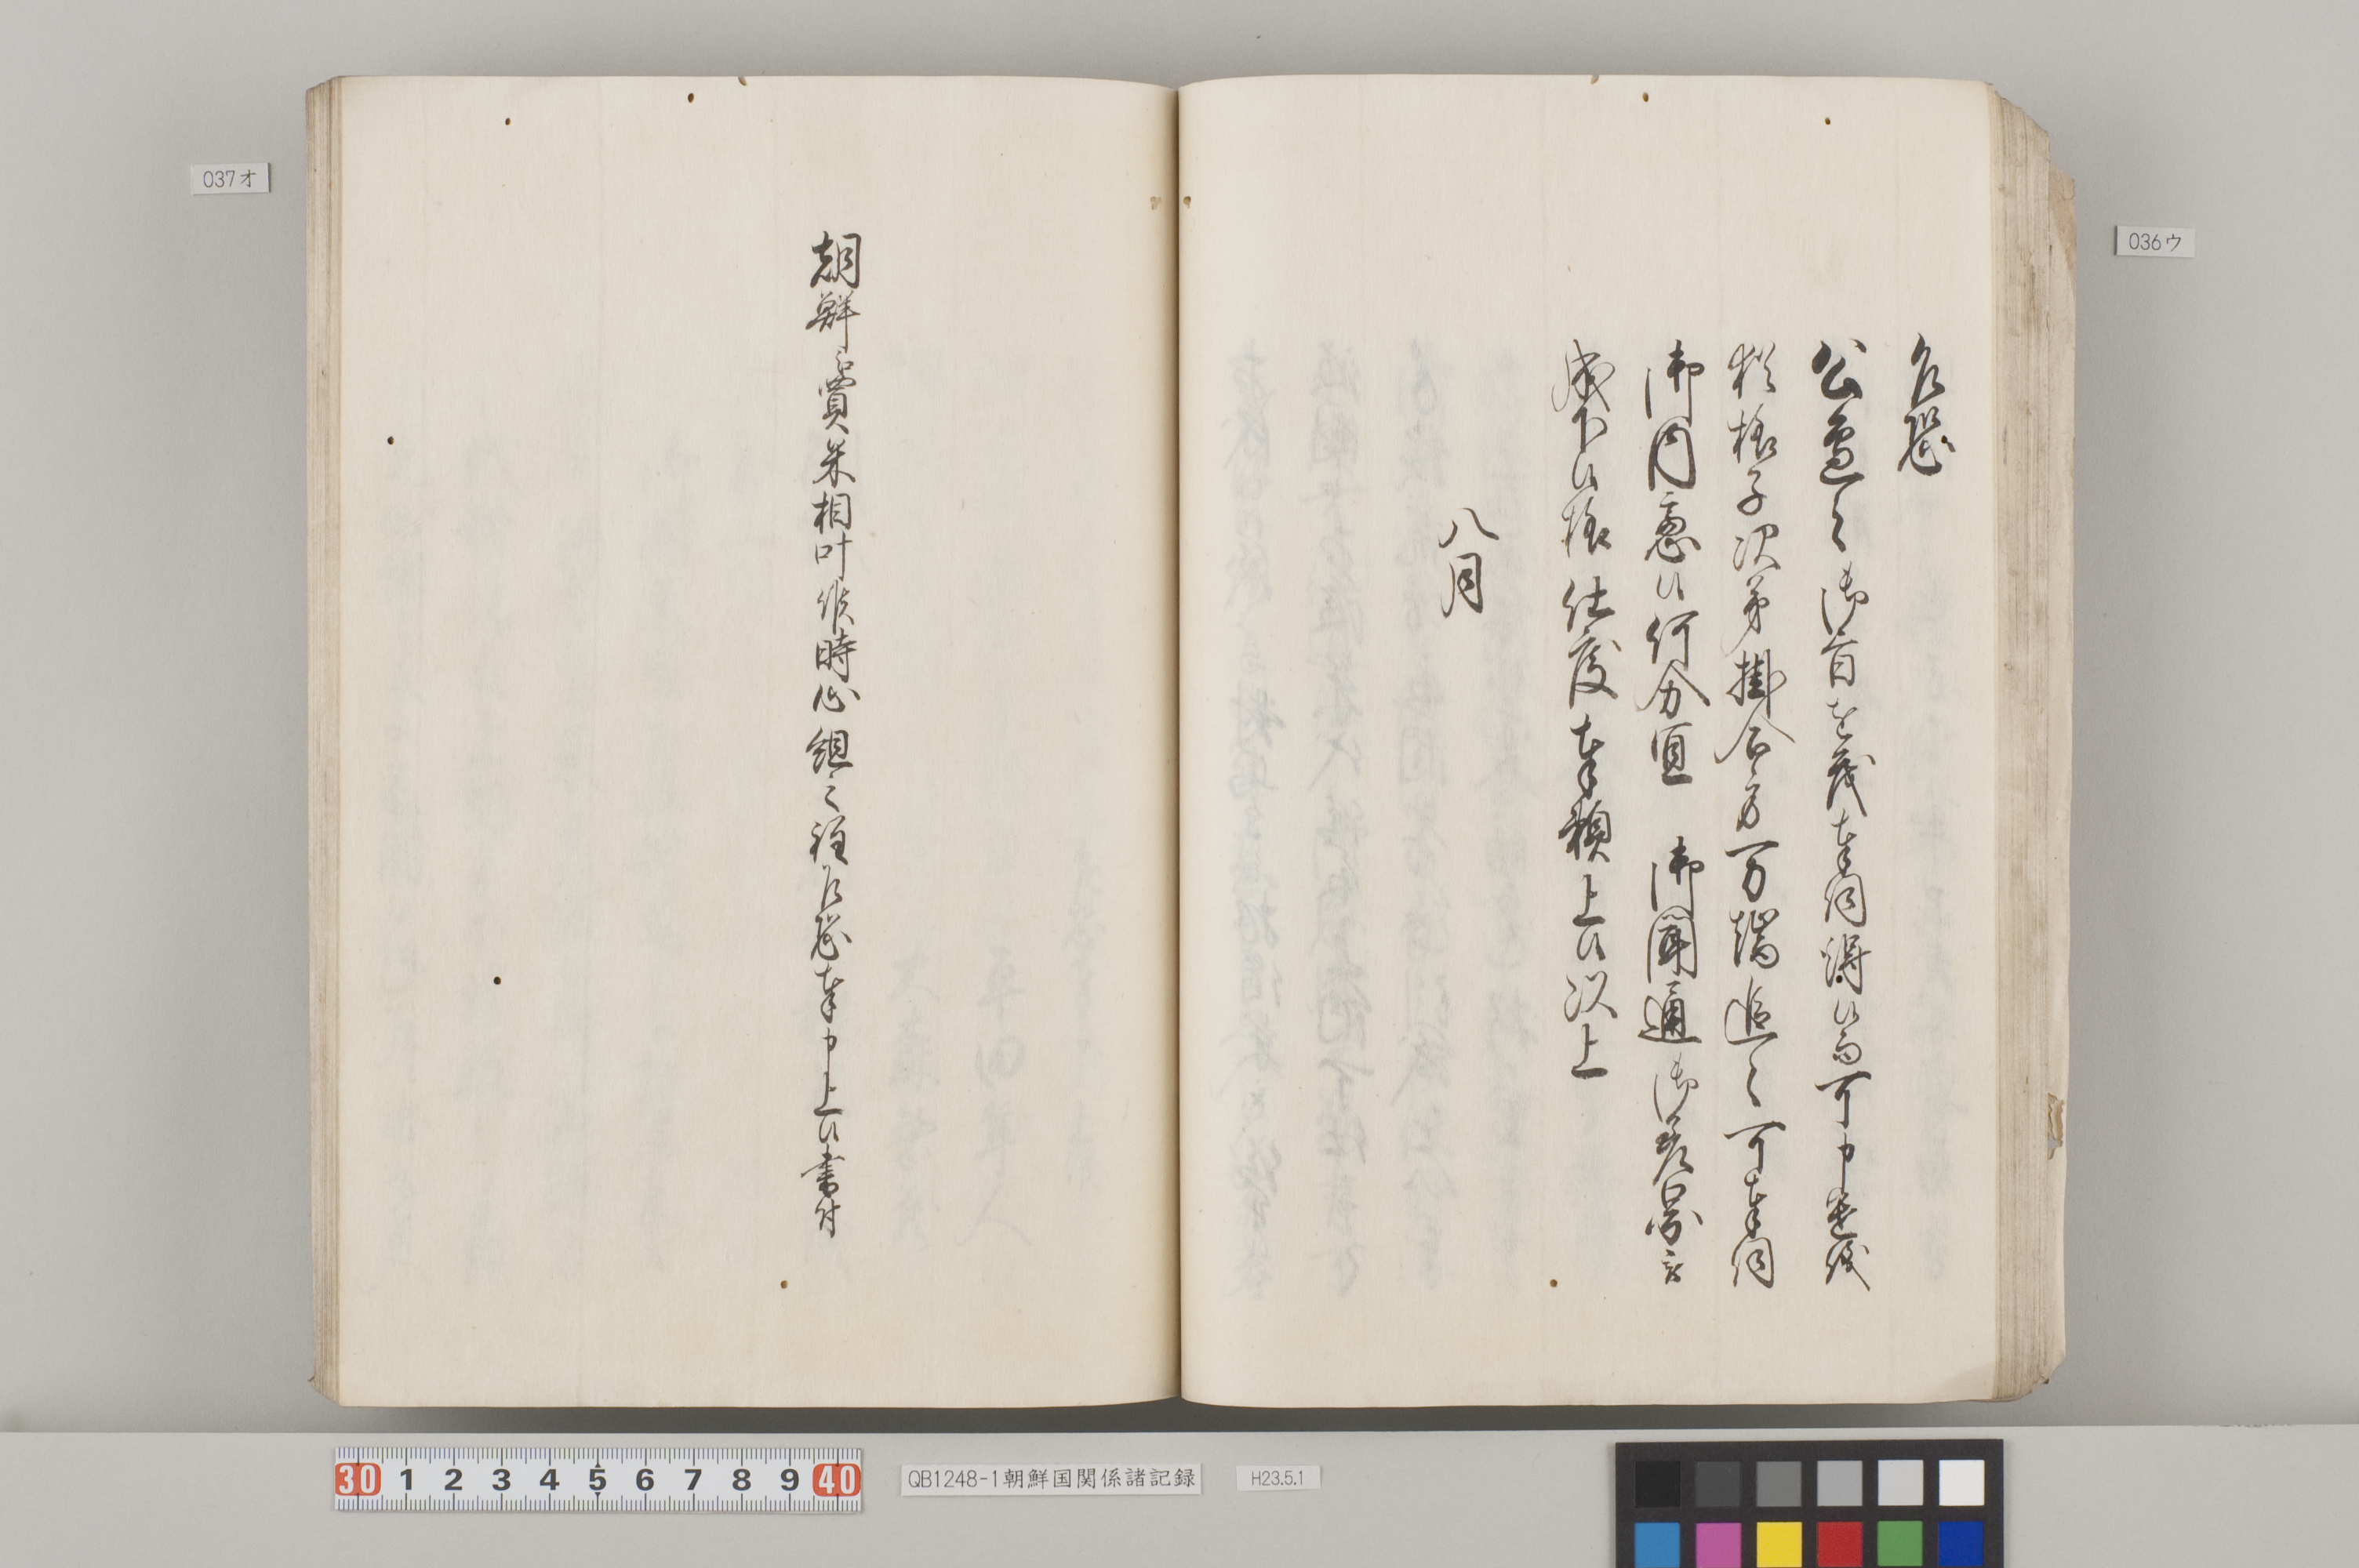 乍恐
公邊之御首尾茂奉伺得候而可申遣儀
於様子次第掛合方万端追々可奉伺
御内慮候何分宜 御聞通御差図被
成下候様仕度奉願上候以上
八月
朝鮮ゟ買米相叶候時心組之程乍恐奉申上候書付
036ウ
037オ
QB1248-1朝鮮国関係諸記録
H23.5.1
30 1 2 3 4 5 6 7 8 9 40